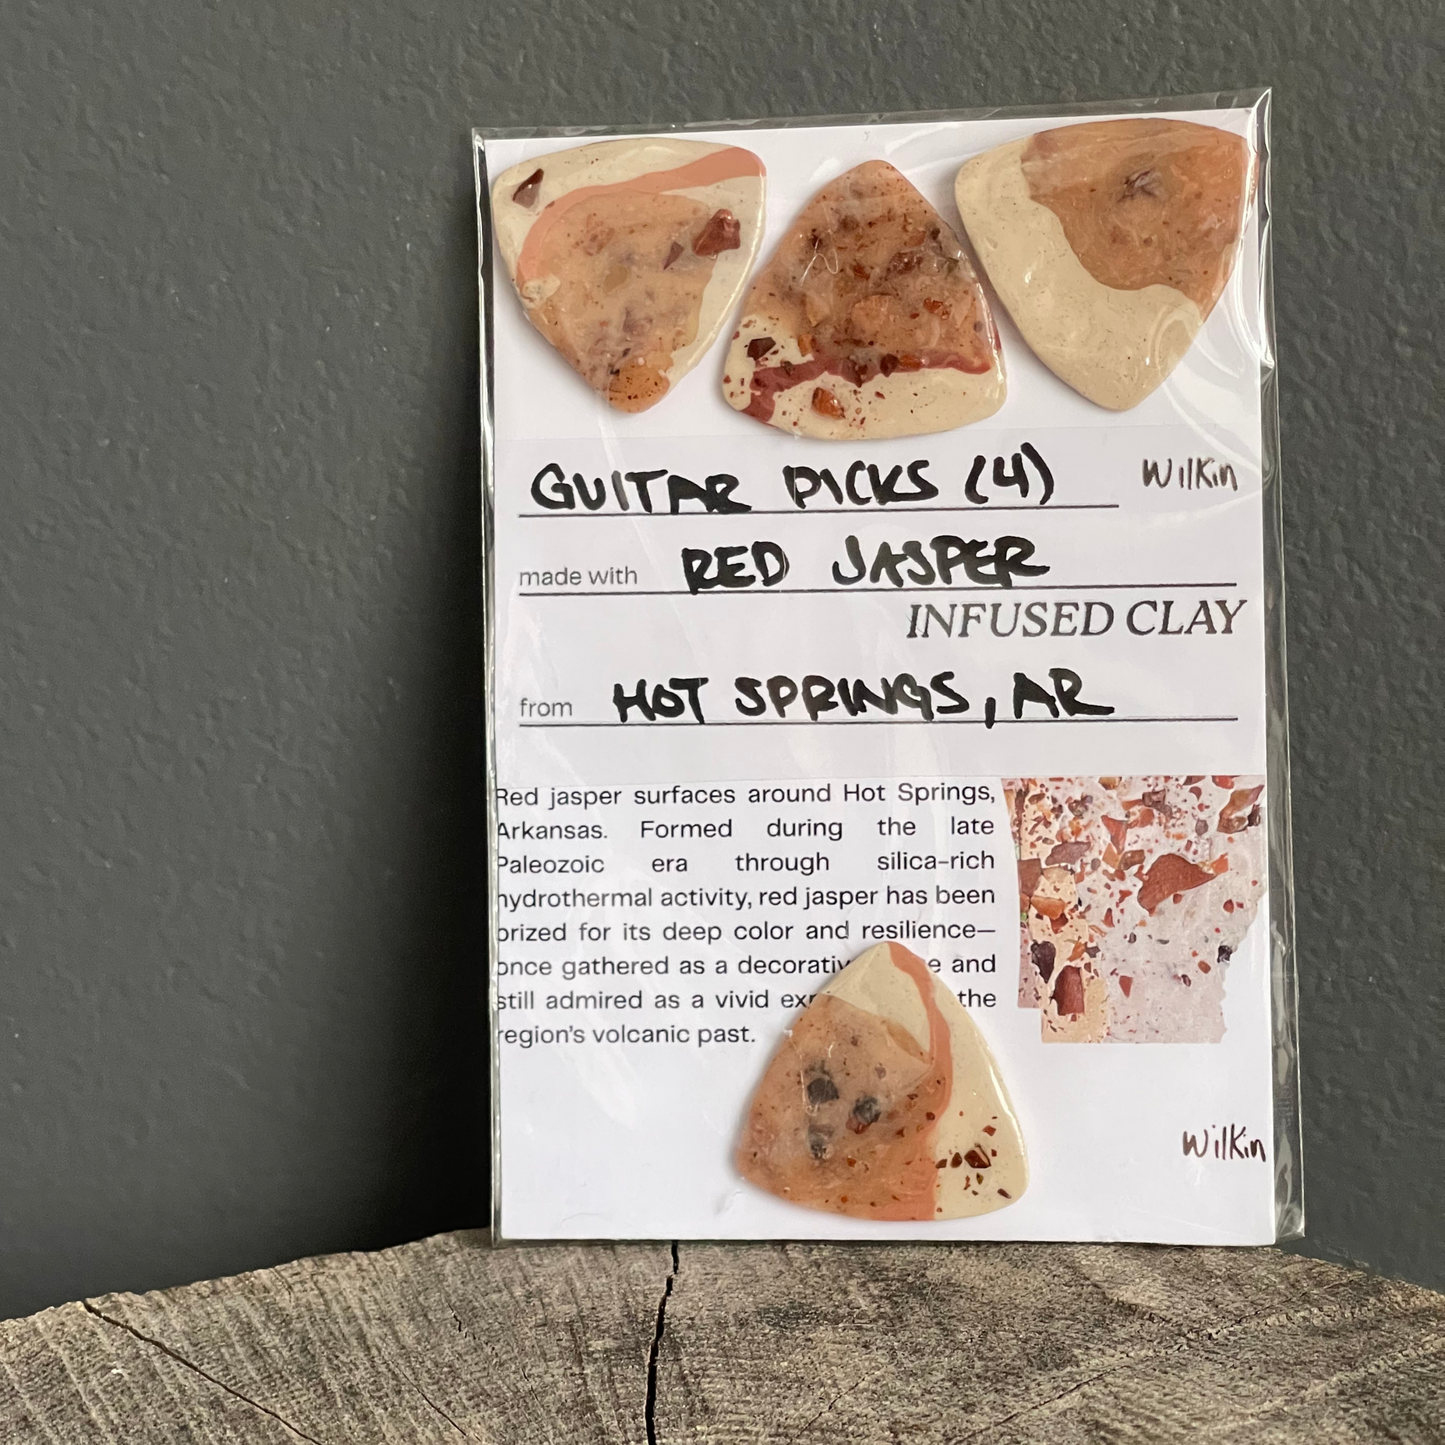 GUITAR PICKS (4) Wilkin
made with RED JASPER
INFUSED CLAY
from HOT SPRINGS, AR
Red jasper surfaces around Hot Springs,
Arkansas. Formed during the late
Paleozoic era through silica-rich
hydrothermal activity, red jasper has been
prized for its deep color and resilience—
once gathered as a decorativ e and
still admired as a vivid exp the
region's volcanic past.
Wilkin